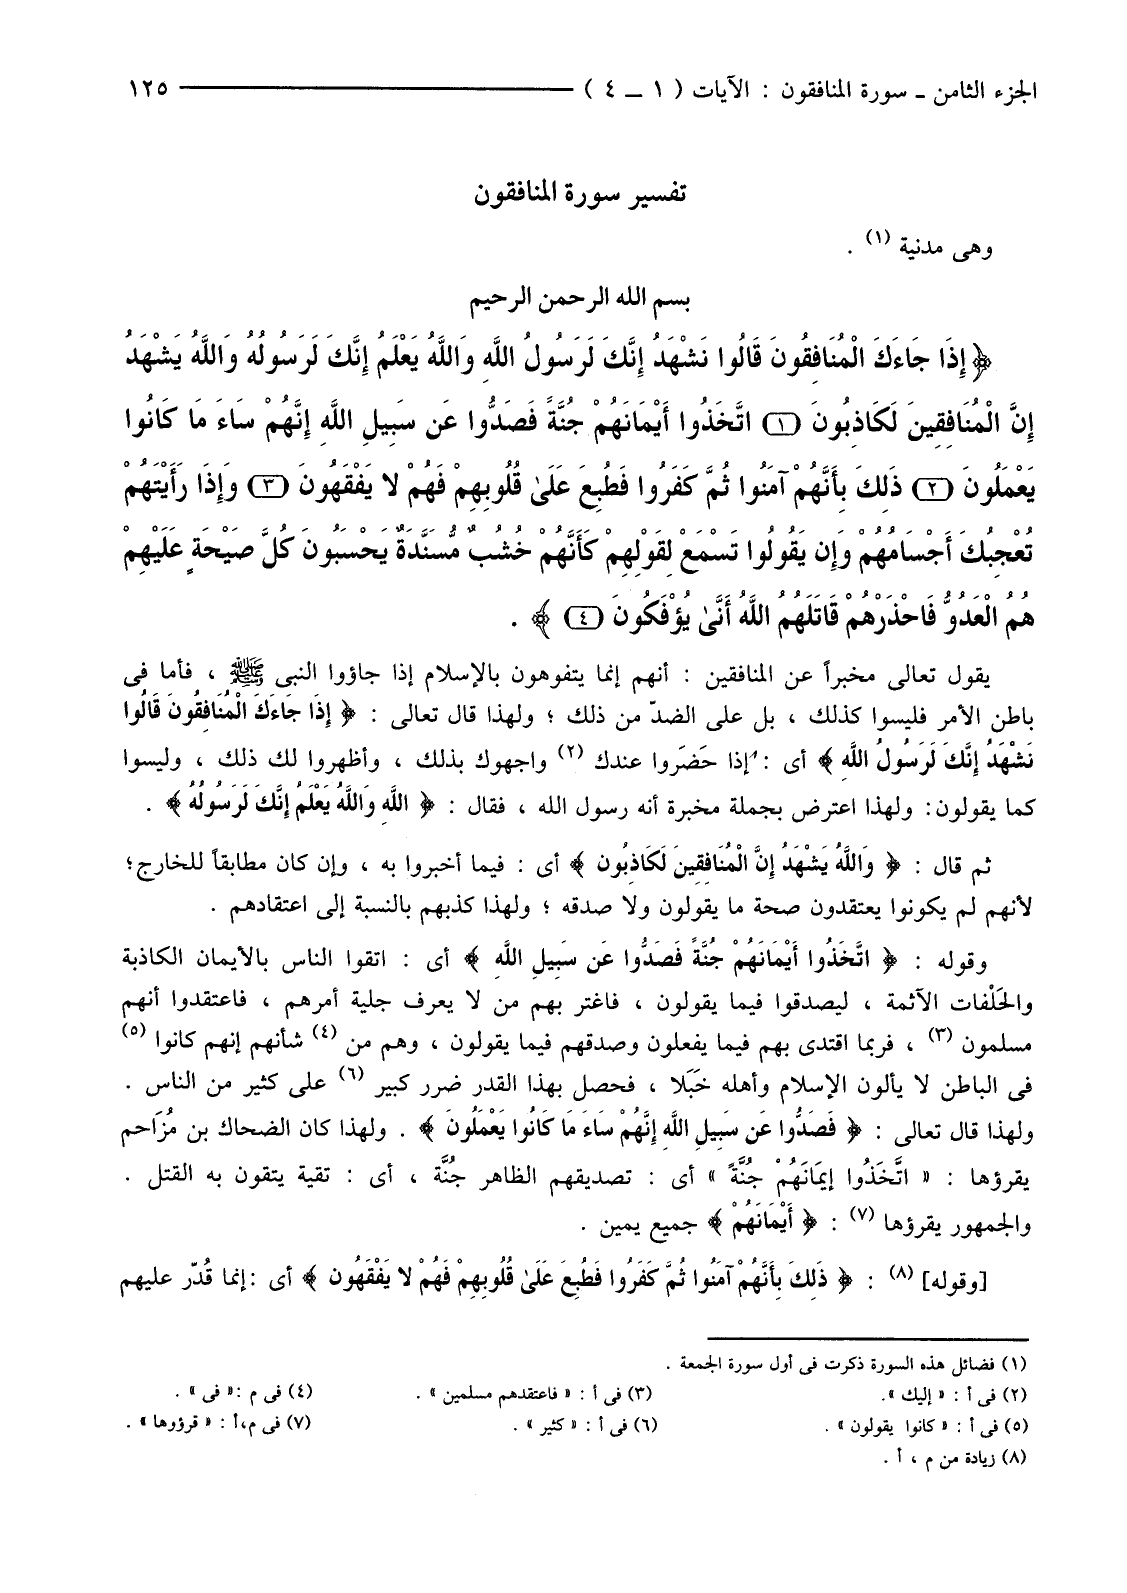 الجزء الثامن ـ سورة المنافقون : الآيات ( ١ ــ ٤ ) ١٢٥
تفسير سورة المنافقون
وهى مدنية (١) .
بسم الله الرحمن الرحيم
﴿ إِذَا جَاءَكَ الْمُنَافِقُونَ قَالُوا نَشْهَدُ إِنَّكَ لَرَسُولُ اللَّهِ وَاللَّهُ يَعْلَمُ إِنَّكَ لَرَسُولُهُ وَاللَّهُ يَشْهَدُ
إِنَّ الْمُنَافِقِينَ لَكَاذِبُونَ (١) اتَّخَذُوا أَيْمَانَهُمْ جُنَّةً فَصَدُّوا عَن سَبِيلِ اللَّهِ إِنَّهُمْ سَاءَ مَا كَانُوا
يَعْمَلُونَ (٢) ذَلِكَ بِأَنَّهُمْ آمَنُوا ثُمَّ كَفَرُوا فَطُبِعَ عَلَىٰ قُلُوبِهِمْ فَهُمْ لا يَفْقَهُونَ (٣) وَإِذَا رَأَيْتَهُمْ
تُعْجِبُكَ أَجْسَامُهُمْ وَإِن يَقُولُوا تَسْمَعْ لِقَوْلِهِمْ كَأَنَّهُمْ خُشُبٌ مُّسَنَّدَةٌ يَحْسَبُونَ كُلَّ صَيْحَةٍ عَلَيْهِمْ
هُمُ الْعَدُوُّ فَاحْذَرْهُمْ قَاتَلَهُمُ اللَّهُ أَنَّىٰ يُؤْفَكُونَ (٤) ﴾ .
يقول تعالى مخبراً عن المنافقين : أنهم إنما يتفوهون بالإسلام إذا جاؤوا النبى ﷺ ، فأما فى
باطن الأمر فليسوا كذلك ، بل على الضدّ من ذلك ؛ ولهذا قال تعالى : ﴿ إِذَا جَاءَكَ الْمُنَافِقُونَ قَالُوا
نَشْهَدُ إِنَّكَ لَرَسُولُ اللَّهِ ﴾ أى : إذا حَضَروا عندك (٢) واجهوك بذلك ، وأظهروا لك ذلك ، وليسوا
كما يقولون: ولهذا اعترض بجملة مخبرة أنه رسول الله ، فقال : ﴿ اللَّه وَاللَّهُ يَعْلَمُ إِنَّكَ لَرَسُولُهُ ﴾ .
ثم قال : ﴿ وَاللَّهُ يَشْهَدُ إِنَّ الْمُنَافِقِينَ لَكَاذِبُون ﴾ أى : فيما أخبروا به ، وإن كان مطابقاً للخارج؛
لأنهم لم يكونوا يعتقدون صحة ما يقولون ولا صدقه ؛ ولهذا كذبهم بالنسبة إلى اعتقادهم .
وقوله : ﴿ اتَّخَذُوا أَيْمَانَهُمْ جُنَّةً فَصَدُّوا عَن سَبِيلِ اللَّه ﴾ أى : اتقوا الناس بالأيمان الكاذبة
والحَلْفات الآثمة ، ليصدقوا فيما يقولون ، فاغتر بهم من لا يعرف جلية أمرهم ، فاعتقدوا أنهم
مسلمون (٣) ، فربما اقتدى بهم فيما يفعلون وصدقهم فيما يقولون ، وهم من (٤) شأنهم إنهم كانوا (٥)
فى الباطن لا يألون الإسلام وأهله خَبَلا ، فحصل بهذا القدر ضرر كبير (٦) على كثير من الناس .
ولهذا قال تعالى : ﴿ فَصَدُّوا عَن سَبِيلِ اللَّهِ إِنَّهُمْ سَاءَ مَا كَانُوا يَعْمَلُونَ ﴾ . ولهذا كان الضحاك بن مُزَاحم
يقرؤها : « اتَّخَذُوا إِيمَانَهُمْ جُنَّةً » أى : تصديقهم الظاهر جُنَّة ، أى : تقية يتقون به القتل .
والجمهور يقرؤها (٧) : ﴿ أَيْمَانَهُمْ ﴾ جميع يمين .
[وقوله] (٨) : ﴿ ذَلِكَ بِأَنَّهُمْ آمَنُوا ثُمَّ كَفَرُوا فَطُبِعَ عَلَىٰ قُلُوبِهِمْ فَهُمْ لا يَفْقَهُون ﴾ أى :إنما قُدّر عليهم
(١) فضائل هذه السورة ذكرت فى أول سورة الجمعة .
(٢) فى أ : « إليك ». (٣) فى أ : « فاعتقدهم مسلمين » . (٤) فى م :« فى » .
(٥) فى أ : « كانوا يقولون » . (٦) فى أ : « كثير » . (٧) فى م،أ : « قرؤرها » .
(٨) زيادة من م ، أ .